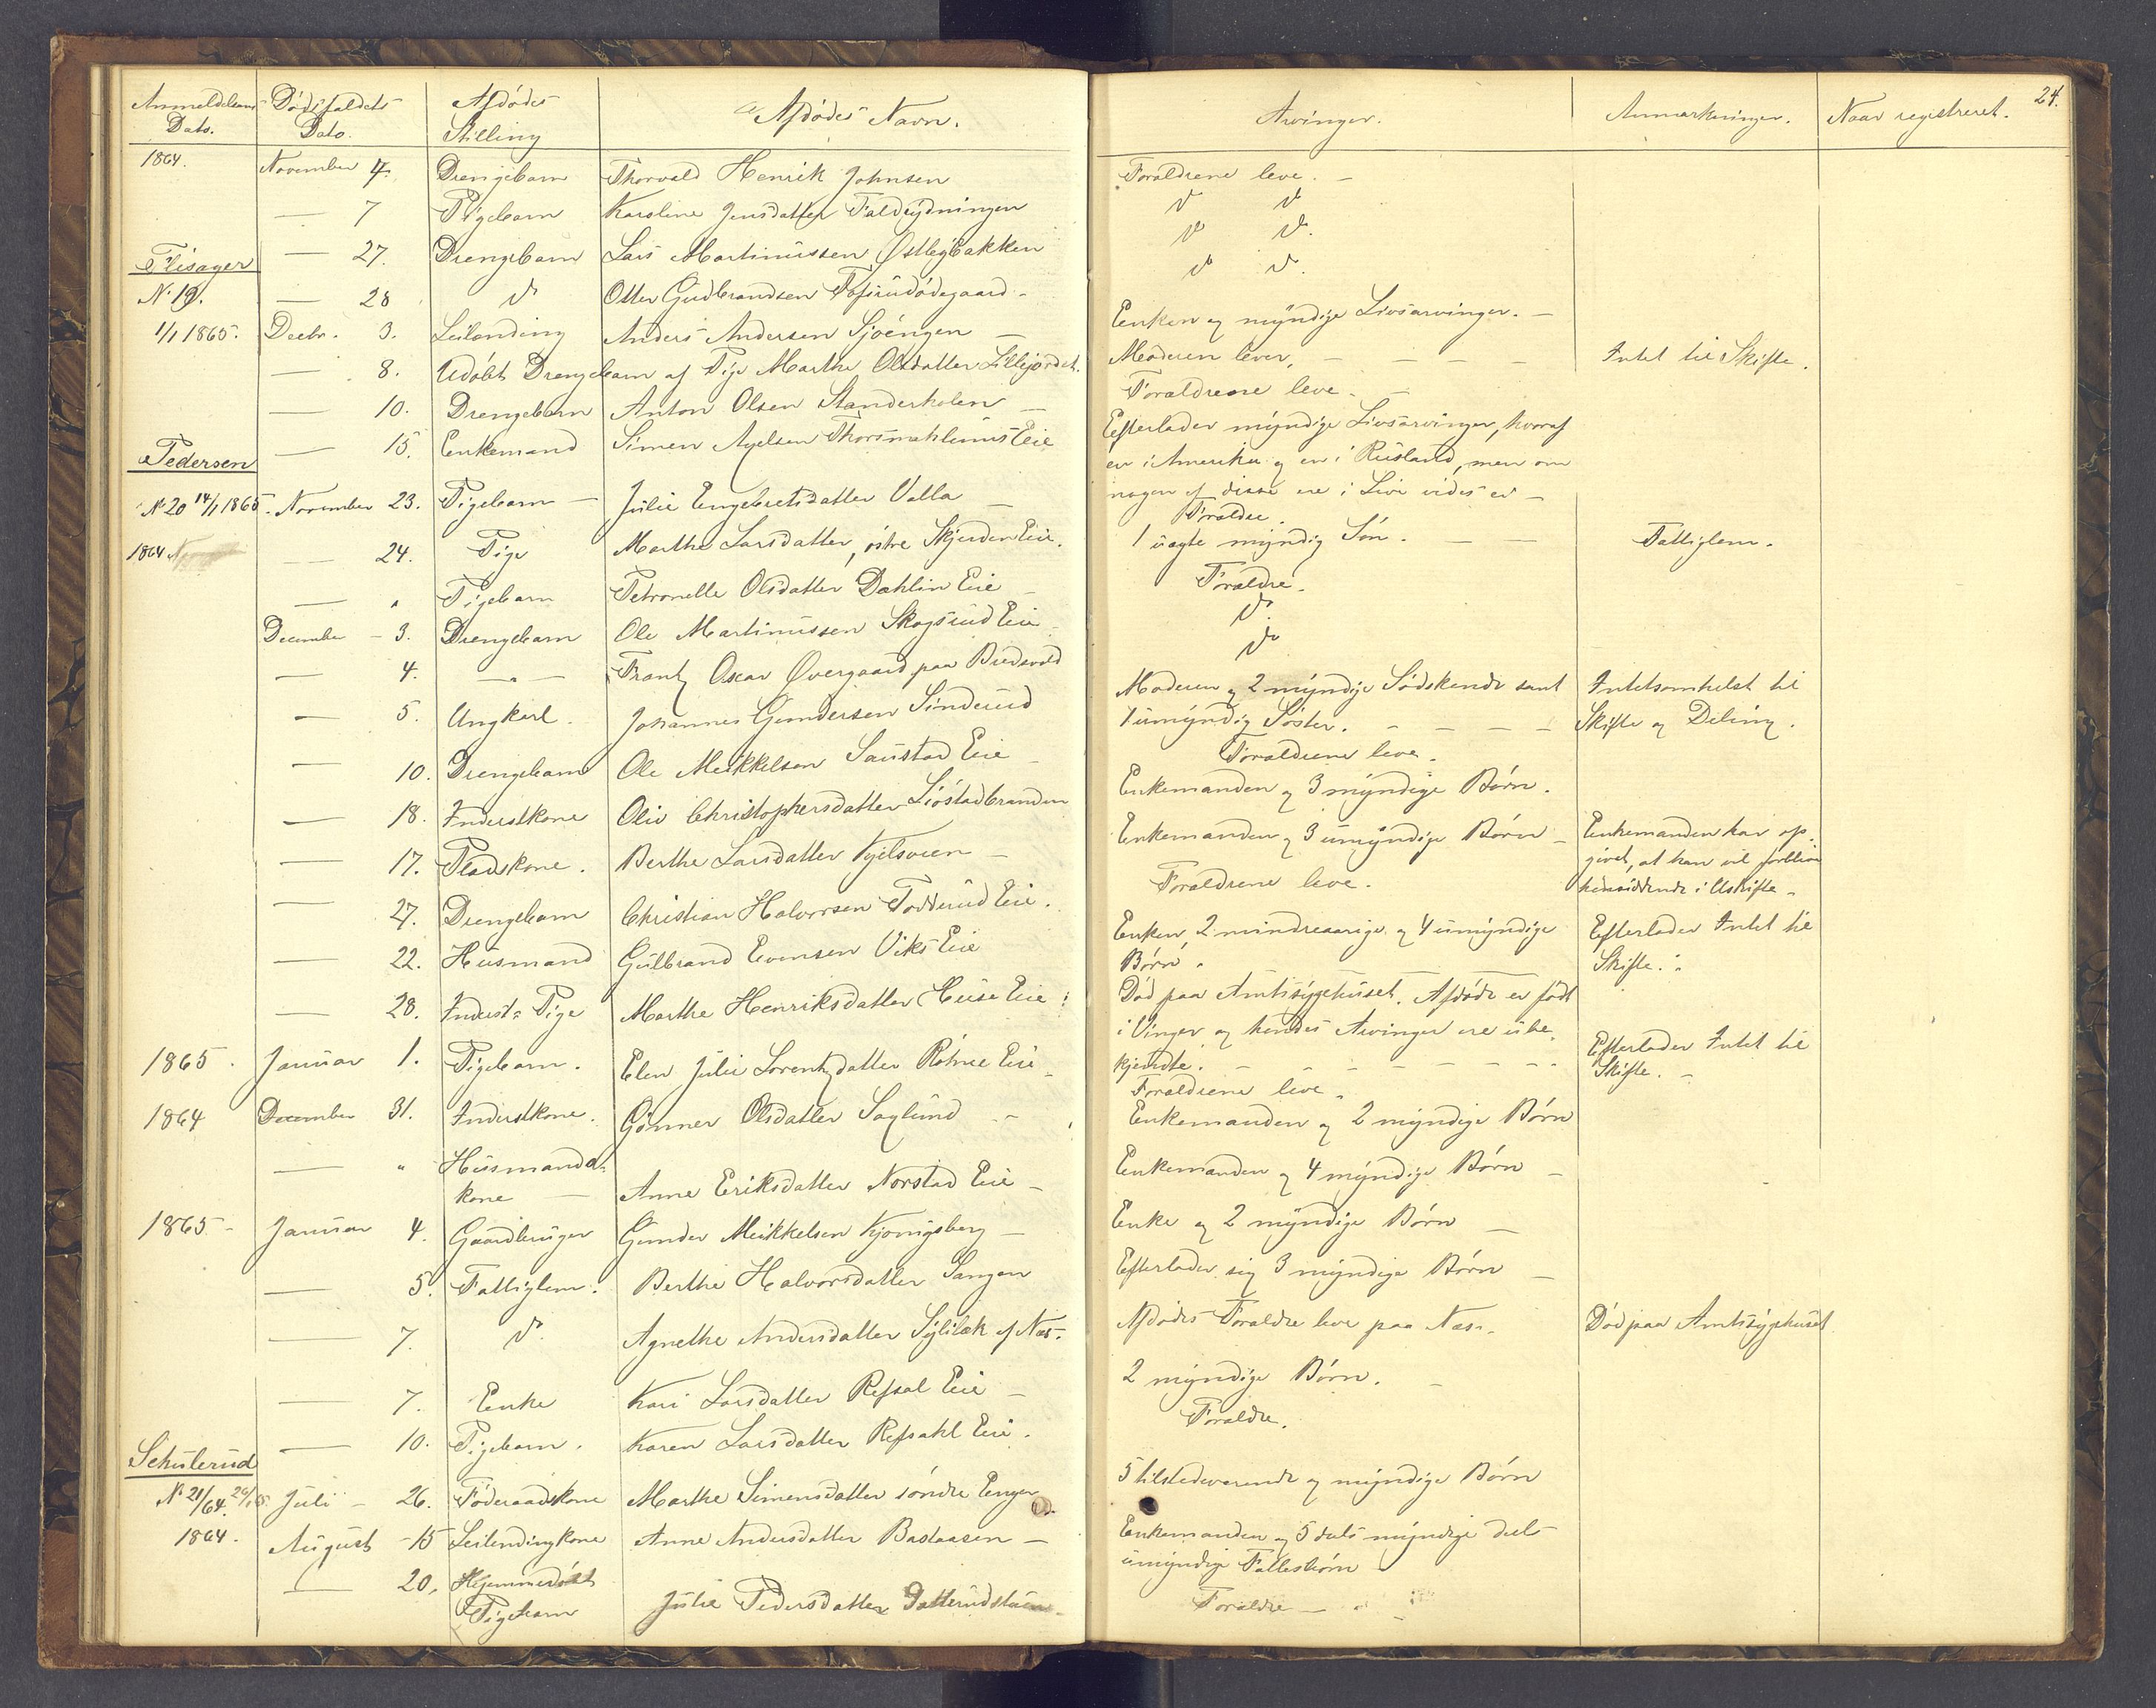 24.
Anmeldelsens Dato. Dödsfaldets Dato. Afdödes Stilling Afdödes Navn. Arvinger. Anmærkninger. Naar registreret.
1864. November 4. Drengebarn Thorvald Henrik Johnsen Forældrene leve. —
— 7 Pigebarn Karoline Jensdatter Faldrydningen do do
— 27. Drengebarn Lars Martinussen Østbybakken do do.
Flisager
N. 19. — 28 do Otter Gudbrandsen ødegaard - do do.
1/1 1865. Decbr. 3. Leilænding Anders Andersen Sjøengen — Enken og myndige Livsarvinger. —
— 8. Udöbt Drengebarn af Pige Marthe Olsdatter Lillejordet. Moderen lever, — — — — Intet til Skifte.
— 10. Drengebarn Anton Olsen Standerholen — Forældrene leve. —
— 15. Enkemand Simen Thorsmahlums Eie Efterlader myndige Livsarvinger, hvoraf
en i Amerika og en i Rusland, men om
nogen af disse ere i Live vides ei —
Pedersen
N. 20 14/1 1865. November 23. Pigebarn — Julie Engebretsdatter Valla — Forældre.
1864 — 24. Pige Marthe Larsdatter, östre Skjerden Eie. 1 uægte myndig Sön. — — Fattiglem.
— " Pigebarn Petronelle Olsdatter Dahlin Eie — Forældre.
December - 3. Drengebarn Ole Martinussen Skogsrud Eie - do.
— 4. —"— Frantz Oscar Øvergaard paa Bredsvold do
— 5. Ungkarl. Johannes Gundersen Sinderud Moderen og 2 myndige Södskende samt Intetsomhelst til
1 umyndig Söster. - - - - Skifte og Deling.
— 10. Drengebarn Ole Mekkelsen Saustad Eie — Forældrene leve.
— 18. Inderstkone Olia Christophersdatter Liöstadbraaden Enkemanden og 3 myndige Börn.
— 17. Pladskone. Berthe Larsdatter Kjelsveen — Enkemanden og 3 umyndige Börn — Enkemanden har op-
givet, at han vil forblive
hensiddende i Uskifte -
— 27. Drengebarn Christian Halvorsen Todderud Eie. Forældrene leve.
— 22. Husmand Gulbrand Evensen Viks Eie Enken, 2 mindreaarige og 4 umyndige Efterlader Intet til
Börn. Skifte.
— 28. Inderst= Pige Marthe Henriksdatter Huse Eie Död paa Amtssygehuset. Afdöde er födt
i Vinger og hendes Arvinger ere ube- Efterlader Intet til
kjendte. - - - - - - Skifte. -
1865. Januar 1. Pigebarn. Elen Julie Lorentzdatter Röhne Eie - Forældrene leve.
1864 December 31. Inderstkone. Gunner Olsdatter Saglund - - Enkemanden og 2 myndige Börn
— " Husmands-
kone — Anne Eriksdatter Norstad Eie — Enkemanden og 4 myndige Börn —
1865 - Januar 4. Gaardbruger Gunder Mekkelsen Kjonigsberg — Enke og 2 myndige Börn —
— 5. Fattiglem. Berthe Halvorsdatter Sangen Efterlader sig 3 myndige Börn —
— 7. do. Agnethe Andersdatter af Næs. Afdödes Forældre leve paa Næs.. Död paa Amtssygehuset
— 7. Enke Kari Larsdatter Refsal Eie — 2 myndige Börn. —
— 10. Pigebarn. Karen Larsdatter Refsahl Eie. Forældre.
Schulerud
N. 21/64. Juli - 26. Föderaadskone Marthe Simensdatter söndre Enger 5 tilstedeværende og myndige Börn
1864. August - 15 Leilendingkone Anne Andersdatter Bastaasen — Enkemanden og 5 dels myndige dels
umyndige Fællesbörn
— 20. Hjemmedöbt
Pigebarn Julie Pedersdatter Forældre —